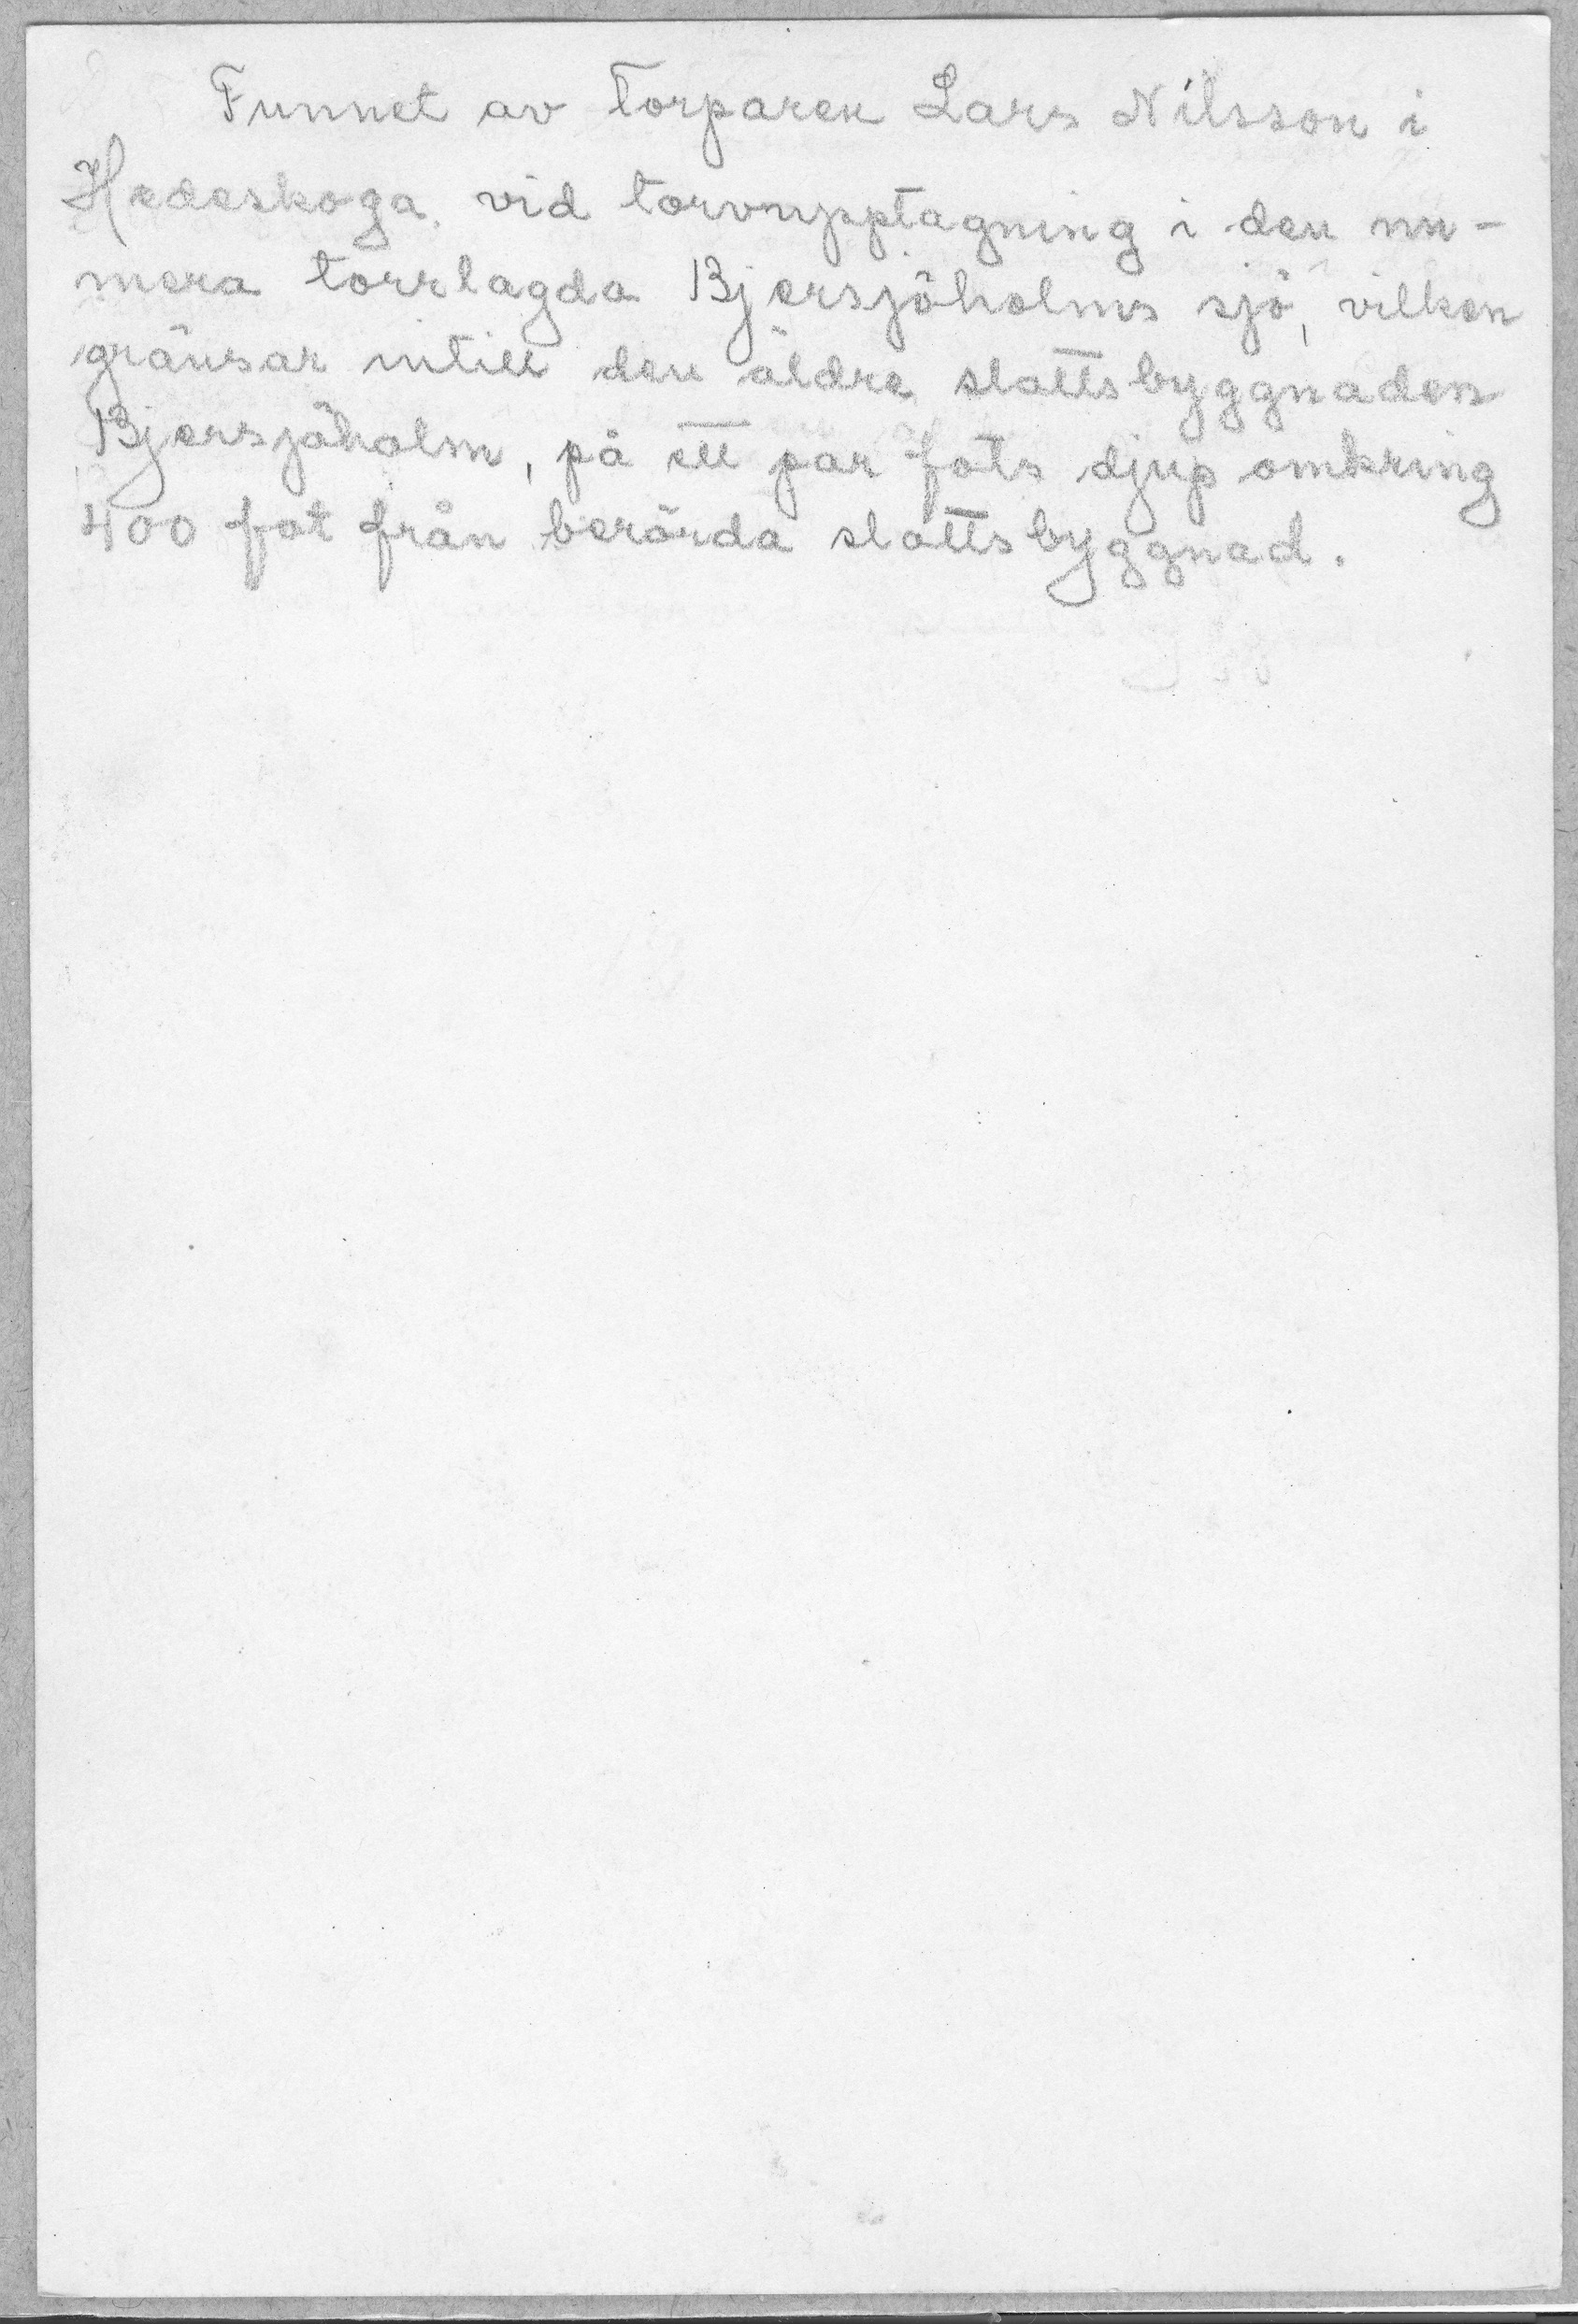 Funnet av torparen Lars Nilsson i
Hedeskoga vid torvupptagning i den nu-
mera torrlagda Bjersjöholms sjö, vilken
gränsar intill den äldre slottsbyggnaden
Bjersjöholm, på ett par fots djup omkring
400 fot från berörda slottsbyggnad.